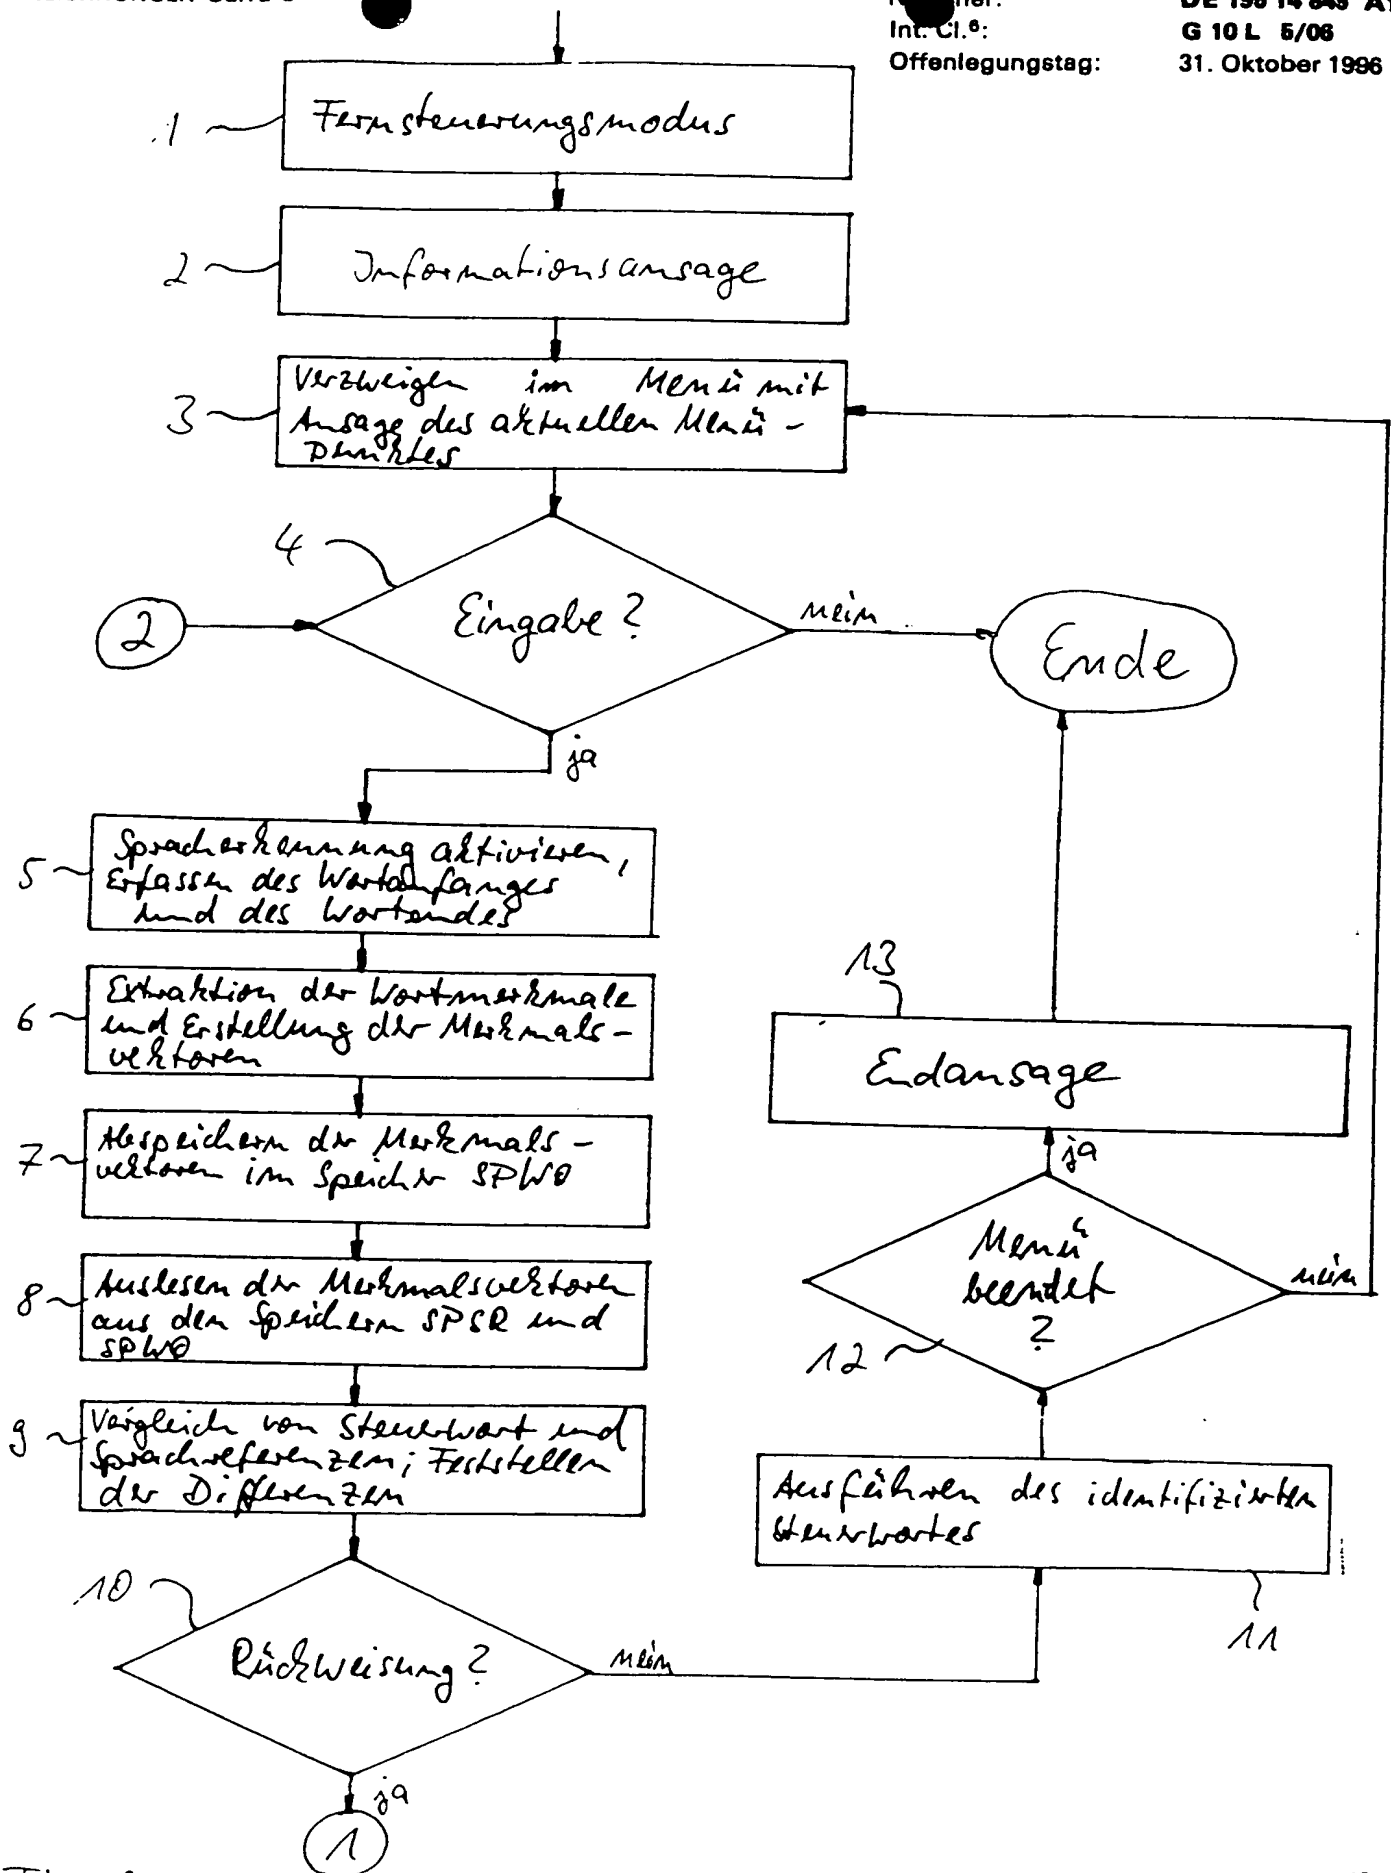 Int. Cl.⁶:
G 10 L 5/06
Offenlegungstag:
31. Oktober 1996
1
Fernsteuerungsmodus
2
Informationsansage
3
Verzweigen im Menü mit
Ansage des aktuellen Menü-
punktes
4
2
Eingabe?
nein
Ende
ja
5
Spracherkennung aktivieren,
Erfassen des Wortanfanges
und des Wortendes
6
Extraktion der Wortmerkmale
und Erstellung der Merkmals-
vektoren
7
Abspeichern der Merkmals-
vektoren im Speicher SPWO
8
Auslesen der Merkmalsvektoren
aus den Speichern SPSR und
SPWO
9
Vergleich von Steuerwort und
Sprachreferenzen; Feststellen
der Differenzen
10
Rückweisung?
nein
ja
1
13
Endansage
ja
Menü
beendet
?
nein
12
Ausführen des identifizierten
Steuerwortes
11